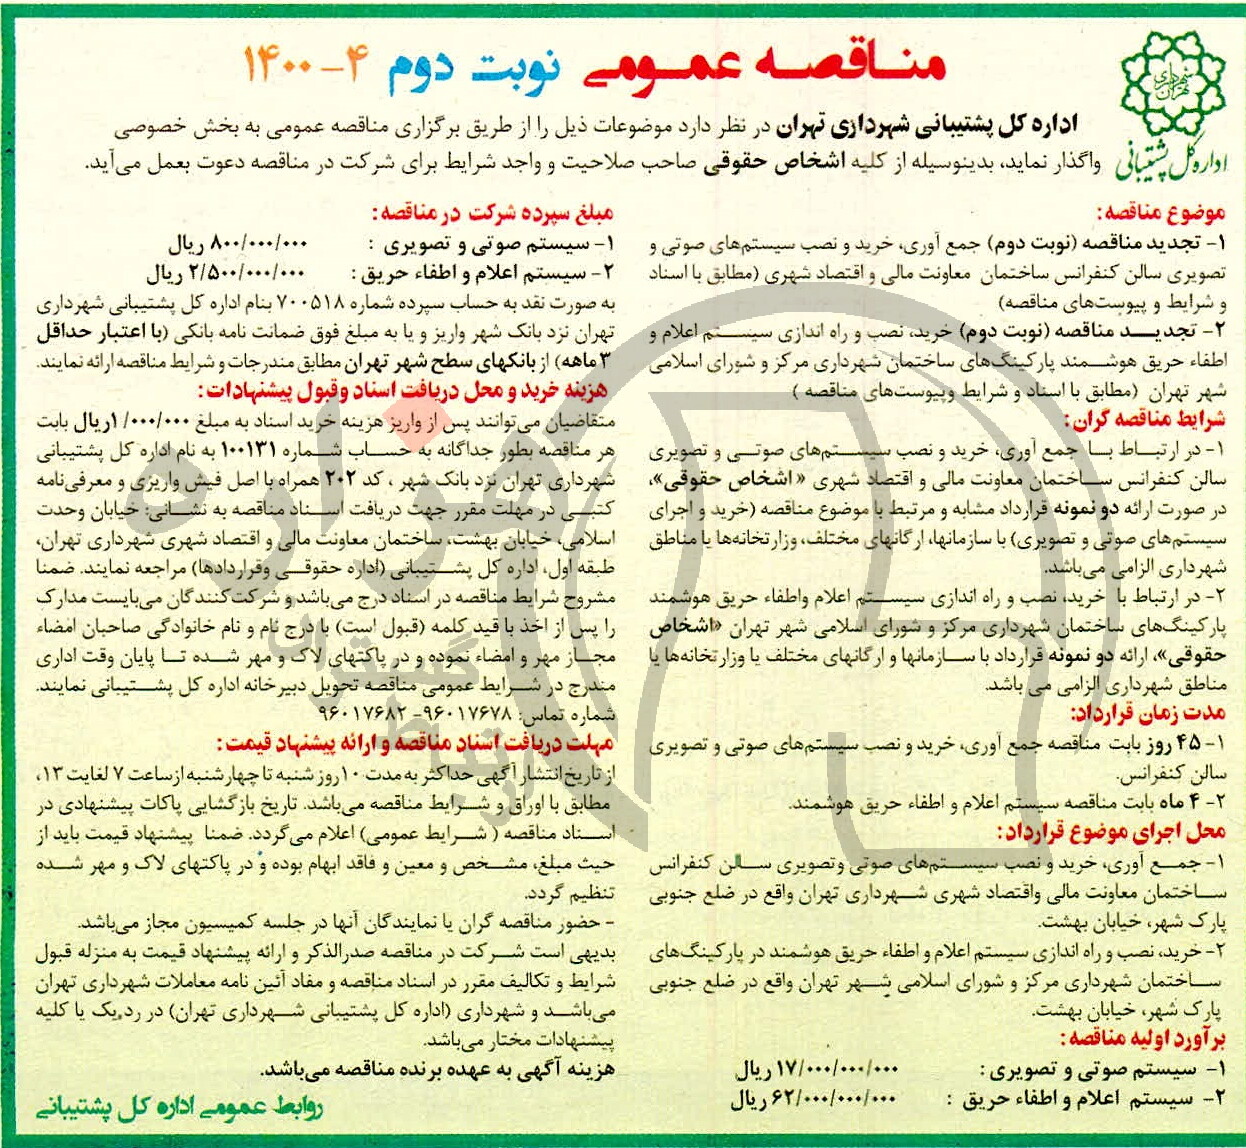 مناقصه عمومی نوبت دوم ۴-۱۴۰۰
شهرداری تهران
اداره کل پشتیبانی
اداره کل پشتیبانی شهرداری تهران در نظر دارد موضوعات ذیل را از طریق برگزاری مناقصه عمومی به بخش خصوصی
واگذار نماید، بدینوسیله از کلیه اشخاص حقوقی صاحب صلاحیت و واجد شرایط برای شرکت در مناقصه دعوت بعمل می‌آید.
موضوع مناقصه:
۱- تجدید مناقصه (نوبت دوم) جمع آوری، خرید و نصب سیستم‌های صوتی و
تصویری سالن کنفرانس ساختمان معاونت مالی و اقتصاد شهری (مطابق با اسناد
و شرایط و پیوست‌های مناقصه)
۲- تجدید مناقصه (نوبت دوم) خرید، نصب و راه اندازی سیستم اعلام و
اطفاء حریق هوشمند پارکینگ‌های ساختمان شهرداری مرکز و شورای اسلامی
شهر تهران (مطابق با اسناد و شرایط وپیوست‌های مناقصه )
شرایط مناقصه گران:
۱- در ارتباط با جمع آوری، خرید و نصب سیستم‌های صوتی و تصویری
سالن کنفرانس ساختمان معاونت مالی و اقتصاد شهری « اشخاص حقوقی»،
در صورت ارائه دو نمونه قرارداد مشابه و مرتبط با موضوع مناقصه (خرید و اجرای
سیستم‌های صوتی و تصویری) با سازمانها، ارگانهای مختلف، وزارتخانه‌ها یا مناطق
شهرداری الزامی می‌باشد.
۲- در ارتباط با خرید، نصب و راه اندازی سیستم اعلام واطفاء حریق هوشمند
پارکینگ‌های ساختمان شهرداری مرکز و شورای اسلامی شهر تهران «اشخاص
حقوقی»، ارائه دو نمونه قرارداد با سازمانها و ارگانهای مختلف یا وزارتخانه‌ها یا
مناطق شهرداری الزامی می باشد.
مدت زمان قرارداد:
۱- ۴۵ روز بابت مناقصه جمع آوری، خرید و نصب سیستم‌های صوتی و تصویری
سالن کنفرانس.
۲- ۴ ماه بابت مناقصه سیستم اعلام و اطفاء حریق هوشمند.
محل اجرای موضوع قرارداد:
۱- جمع آوری، خرید و نصب سیستم‌های صوتی وتصویری سالن کنفرانس
ساختمان معاونت مالی واقتصاد شهری شهرداری تهران واقع در ضلع جنوبی
پارک شهر، خیابان بهشت.
۲- خرید، نصب و راه اندازی سیستم اعلام و اطفاء حریق هوشمند در پارکینگ‌های
ساختمان شهرداری مرکز و شورای اسلامی شهر تهران واقع در ضلع جنوبی
پارک شهر، خیابان بهشت.
برآورد اولیه مناقصه:
۱- سیستم صوتی و تصویری : ۱۷/۰۰۰/۰۰۰/۰۰۰ ریال
۲- سیستم اعلام و اطفاء حریق : ۶۲/۰۰۰/۰۰۰/۰۰۰ ریال
مبلغ سپرده شرکت در مناقصه:
۱- سیستم صوتی و تصویری : ۸۰۰/۰۰۰/۰۰۰ ریال
۲- سیستم اعلام و اطفاء حریق : ۲/۵۰۰/۰۰۰/۰۰۰ ریال
به صورت نقد به حساب سپرده شماره ۷۰۰۵۱۸ بنام اداره کل پشتیبانی شهرداری
تهران نزد بانک شهر واریز و یا به مبلغ فوق ضمانت نامه بانکی (با اعتبار حداقل
۳ ماهه) از بانکهای سطح شهر تهران مطابق مندرجات و شرایط مناقصه ارائه نمایند.
هزینه خرید و محل دریافت اسناد وقبول پیشنهادات:
متقاضیان می‌توانند پس از واریز هزینه خرید اسناد به مبلغ ۱/۰۰۰/۰۰۰ریال بابت
هر مناقصه بطور جداگانه به حساب شماره ۱۰۰۱۳۱ به نام اداره کل پشتیبانی
شهرداری تهران نزد بانک شهر ، کد ۲۰۲ همراه با اصل فیش واریزی و معرفی‌نامه
کتبی در مهلت مقرر جهت دریافت اسناد مناقصه به نشانی: خیابان وحدت
اسلامی، خیابان بهشت، ساختمان معاونت مالی و اقتصاد شهری شهرداری تهران،
طبقه اول، اداره کل پشتیبانی (اداره حقوقی وقراردادها) مراجعه نمایند. ضمنا
مشروح شرایط مناقصه در اسناد درج می‌باشد و شرکت‌کنندگان می‌بایست مدارک
را پس از اخذ با قید کلمه (قبول است) با درج نام و نام خانوادگی صاحبان امضاء
مجاز مهر و امضاء نموده و در پاکتهای لاک و مهر شده تا پایان وقت اداری
مندرج در شرایط عمومی مناقصه تحویل دبیرخانه اداره کل پشتیبانی نمایند.
شماره تماس: ۹۶۰۱۷۶۷۸- ۹۶۰۱۷۶۸۲
مهلت دریافت اسناد مناقصه و ارائه پیشنهاد قیمت:
از تاریخ انتشار آگهی حداکثر به مدت ۱۰ روز شنبه تا چهارشنبه ازساعت ۷ لغایت ۱۳،
مطابق با اوراق و شرایط مناقصه می‌باشد. تاریخ بازگشایی پاکات پیشنهادی در
اسناد مناقصه ( شرایط عمومی) اعلام می‌گردد. ضمنا پیشنهاد قیمت باید از
حیث مبلغ، مشخص و معین و فاقد ابهام بوده و در پاکتهای لاک و مهر شده
تنظیم گردد.
- حضور مناقصه گران یا نمایندگان آنها در جلسه کمیسیون مجاز می‌باشد.
بدیهی است شرکت در مناقصه صدرالذکر و ارائه پیشنهاد قیمت به منزله قبول
شرایط و تکالیف مقرر در اسناد مناقصه و مفاد آئین نامه معاملات شهرداری تهران
می‌باشد و شهرداری (اداره کل پشتیبانی شهرداری تهران) در رد یک یا کلیه
پیشنهادات مختار می‌باشد.
هزینه آگهی به عهده برنده مناقصه می‌باشد.
روابط عمومی اداره کل پشتیبانی